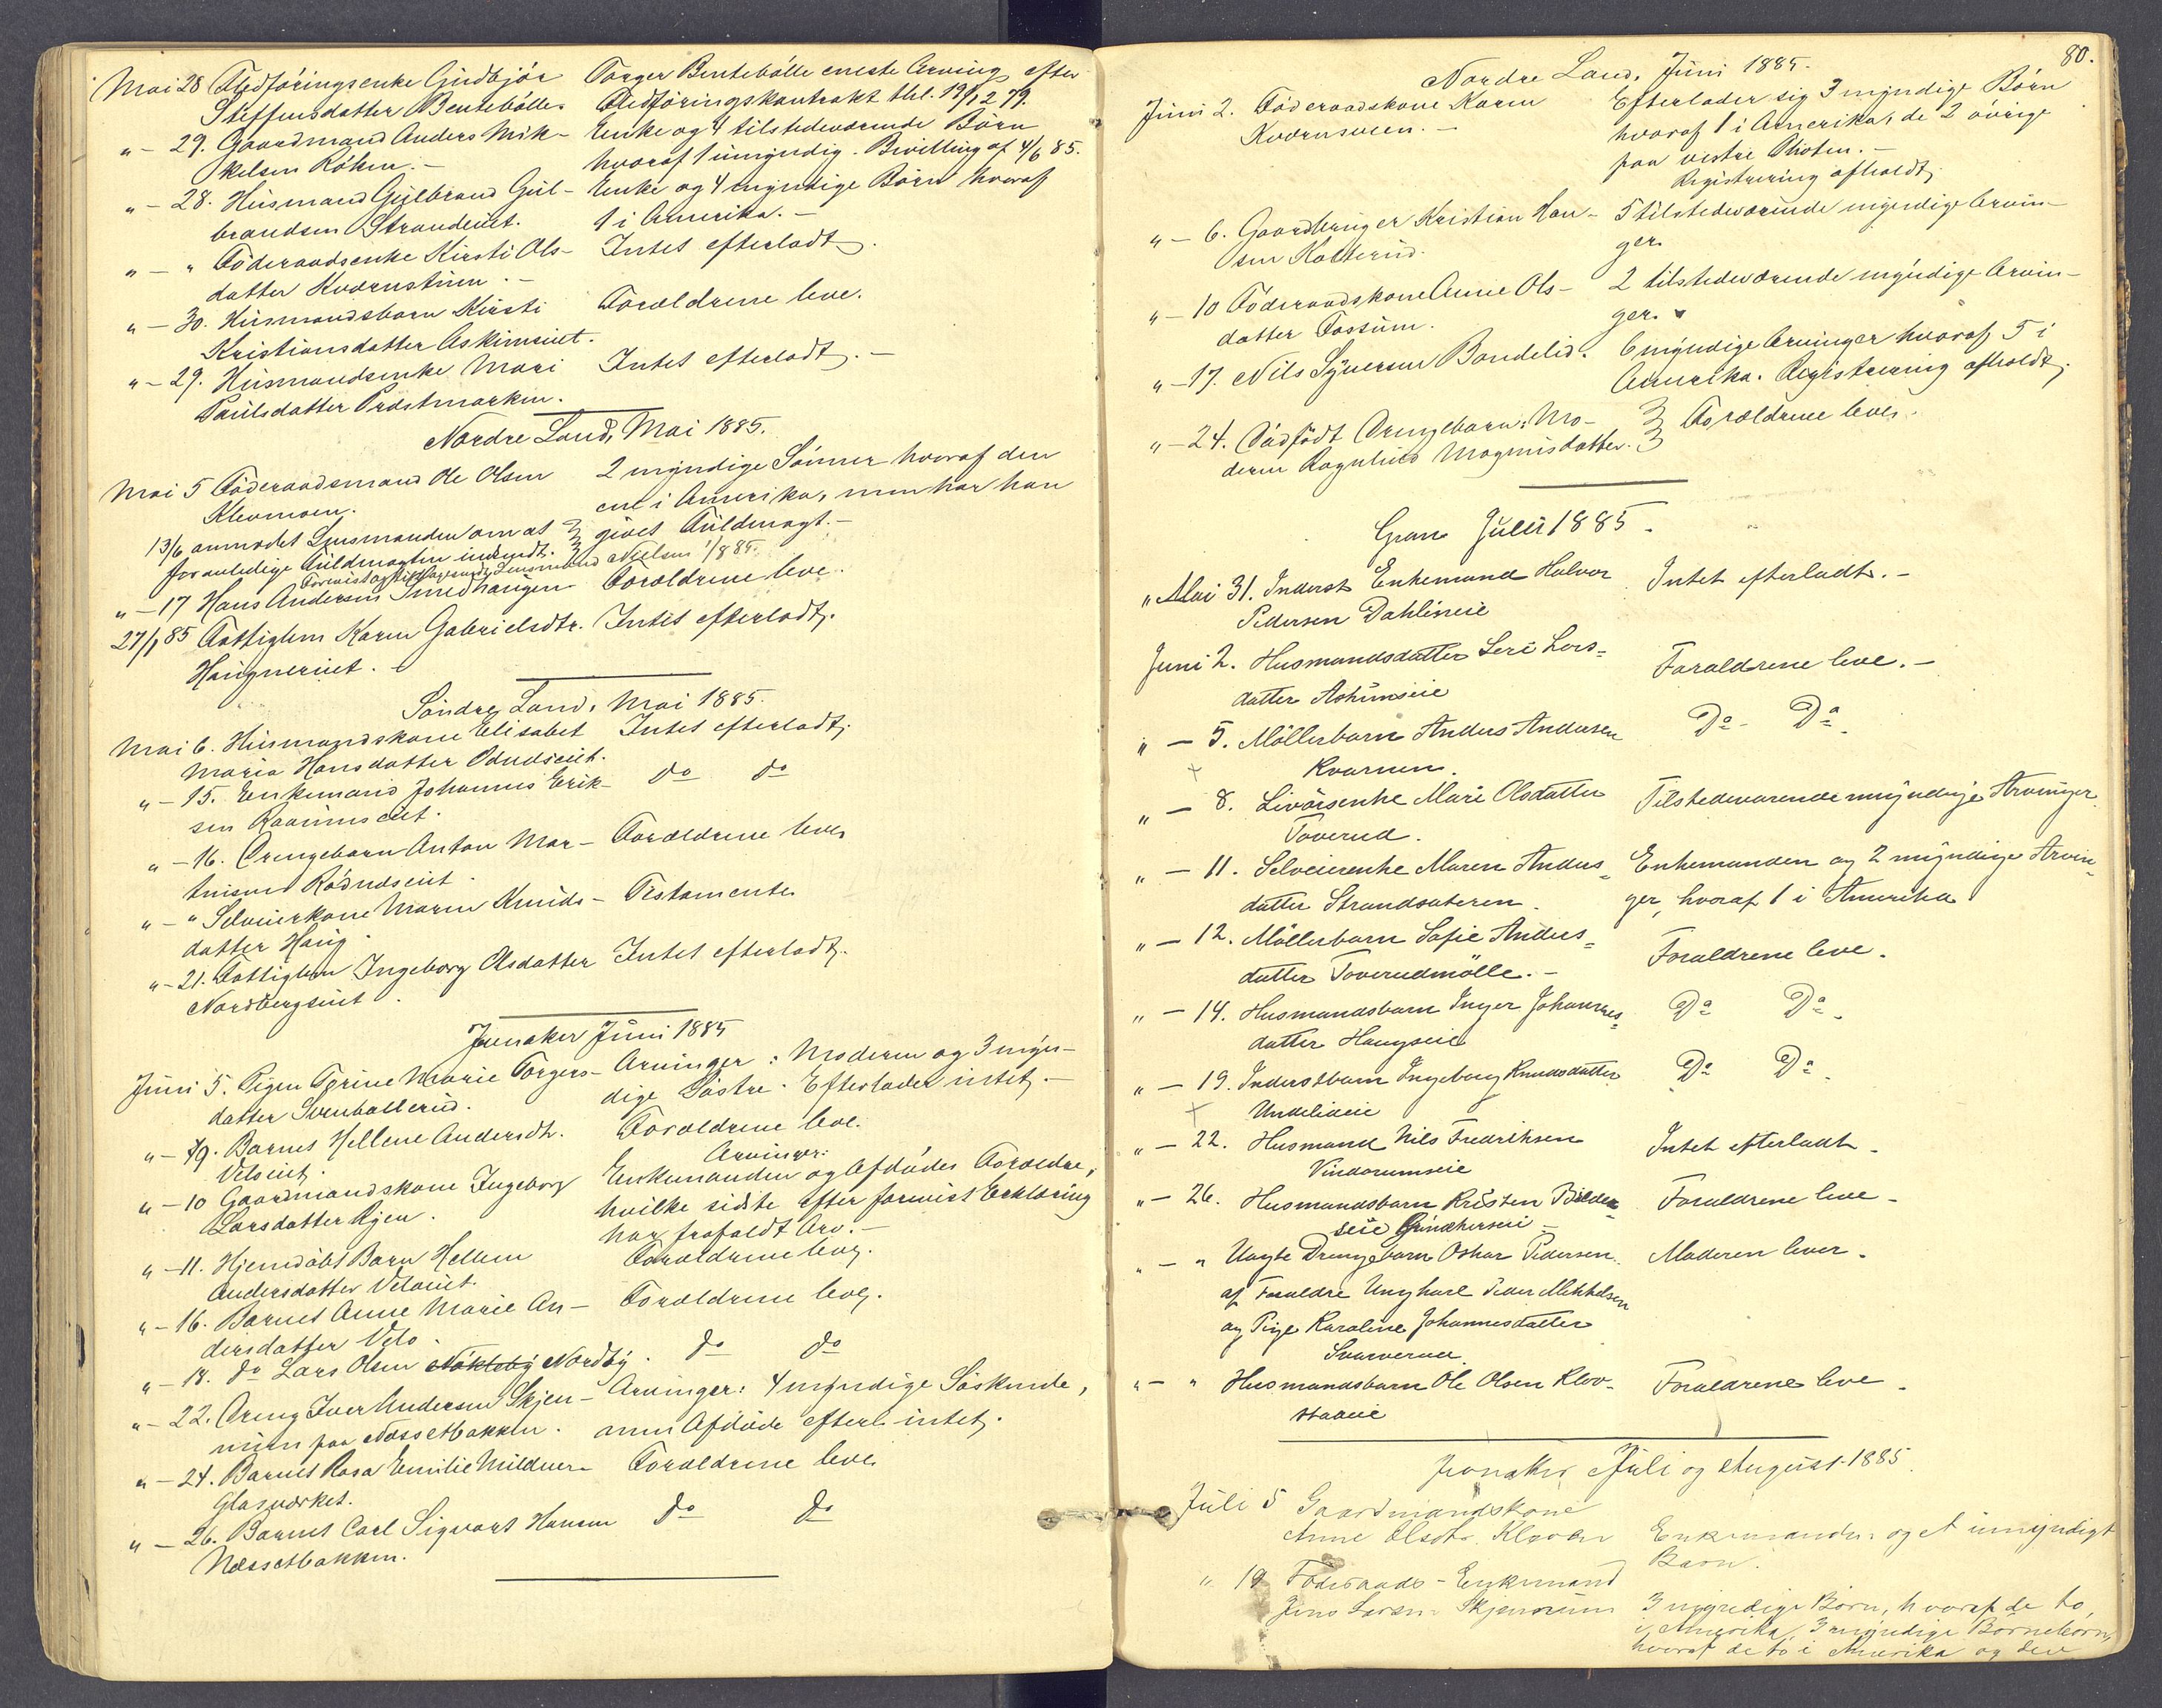 Mai 28 Flødføringsenke Gudbjør Torger Bentebølle eneste Arving efter
Steffensdatter Bentebølle. Flødføringskontrakt thl. 19/12 79.
" - 29. Gaardmand Anders Mik- Enke og 4 tilstedeværende Børn
kelsen Røken. - hvoraf 1 umyndig. Bevilling af 4/6 85.
" - 28. Husmand Gulbrand Gul- Enke og 4 myndige Børn hvoraf
brandsen Strandeiet. 1 i Amerika. -
" - " Føderaadsenke Kirsti Ols- Intet efterladt.
datter Kværnstuen. -
" - 30. Husmandsbarn Kirsti Forældrene leve.
Kristiansdatter Askimeiet.
" - 29. Husmandsenke Mari Intet efterladt. -
Paulsdatter Præstmarken.
Nordre Land, Mai 1885.
Mai 5 Føderaadsmand Ole Olsen 2 myndige Sønner hvoraf den
Klevmoen. ene i Amerika, men har han
13/6 anmodet Lensmanden om at givet Fuldmagt. -
foranledige Fuldmagten indsendt.
Forevist og tilbagesendt Lensmand Nielsen 1/8 85.
" - 17 Hans Andersen Smedhaugen Forældrene leve.
27/7 85 Fattiglem Karen Gabrielsdtr. Intet efterladt.
Haugnereiet.
Søndre Land, Mai 1885.
Mai 6. Husmandskone Elisabet Intet efterladt.
Maria Hansdatter Odnæseiet.
" - 15. Enkemand Johannes Erik- do do
sen Raaumseiet.
" - 16. Drengebarn Anton Mar- Forældrene leve.
tinsen Rødnæseiet.
" - " Selveierkone Maren Knuds- Testamente.
datter Haug.
" - 21. Fattiglem Ingeborg Olsdatter Intet efterladt.
Nordbergseiet.
Jevnaker Juni 1885
Juni 5. Pigen Torine Marie Torgers- Arvinger: Moderen og 3 myn-
datter Svenballerud. dige Søstre. Efterlader intet. -
" - 9. Barnet Hellene Andersdtr. Forældrene leve.
Veloeiet.
Arvinger:
" - 10 Gaardmandskone Ingeborg Enkemanden og Afdødes Forældre,
Larsdatter Rjen. hvilke sidste efter forevist Erklæring
har frafaldt Arv. -
" - 11. Hjemdøbt Barn Hellene Forældrene leve.
Andersdatter Veloeiet.
" - 16. Barnet Anne Marie An- Forældrene leve.
dersdatter Velo.
" - 18. do Lars Olsen Nøkleby Nordby. do do
" - 22. Dreng Iver Andersen Skjen- Arvinger: 4 myndige Søskende,
num paa Næssetbakken. men Afdøde efterl. intet.
" - 24. Barnet Rosa Emilie Mildner- Forældrene leve.
Glasværket.
" - 26. Barnet Carl Sigvart Hansen do do
Næssetbakken.
80.
Nordre Land, Juni 1885.
Juni 2. Føderaadskone Karen Efterlader sig 3 myndige Børn
Kværnsveen. - hvoraf 1 i Amerika, de 2 øvrige
paa vestre Thoten. -
Registrering afholdt.
" - 6. Gaardbruger Kristian Han- 5 tilstedeværende myndige Arvin-
sen Kolterud. ger.
" - 10 Føderaadskone Anne Ols- 2 tilstedeværende myndige Arvin-
datter Fossum. ger.
" - 17. Nils Syversen Bondelid. 6 myndige Arvinger hvoraf 5 i
Amerika. Registrering afholdt.
" - 24. Dødfødt Drengebarn: Mo- Forældrene leve.
deren Ragnhild Magnusdatter.
Gran Juli 1885.
" Mai 31. Inderst Enkemand Halvor Intet efterladt. -
Pedersen Dahlineie
Juni 2. Husmandsdatter Seri Lars- Forældrene leve. -
datter Askimseie
" - 5. Møllerbarn Anders Andersen Do - Do
Kvernen.
" - 8. Livørsenke Mari Olsdatter Tilstedeværende myndige Arvinger.
Toverud.
" - 11. Selveierenke Maren Anders- Enkemanden og 2 myndige Arvin-
datter Strandsæteren. ger, hvoraf 1 i Amerika
" - 12. Møllerbarn Sofie Anders- Forældrene leve.
datter Toverudmølle. -
" - 14. Husmandsbarn Inger Johannes- Do Do
datter Haugseie
" - 19. Inderstbarn Ingeborg Knudsdatter Do Do
Undelideie
" - 22. Husmand Nils Fredriksen Intet efterladt.
Vindorumseie
" - 26. Husmandsbarn Kristen Bilden- Forældrene leve -
seie Grinakerseie -
" - " Uægte Drengebarn Oskar Pedersen. Moderen lever.
af Forældre Ungkarl Peder Mikkelsen
og Pige Karoline Johannesdatter
Svarverud.
" - " Husmandsbarn Ole Olsen Klov- Forældrene leve.
stadeie
Jevnaker Juli og August 1885.
Juli 5 Gaardmandskone
Anne Olsdtr. Kleven Enkemanden og et umyndigt
Barn.
" 19 Føderaads-Enkemand
Jens Larsen Skjennum 3 myndige Børn, hvoraf de to
i Amerika, 3 myndige Børnebørn,
hvoraf de to i Amerika og den